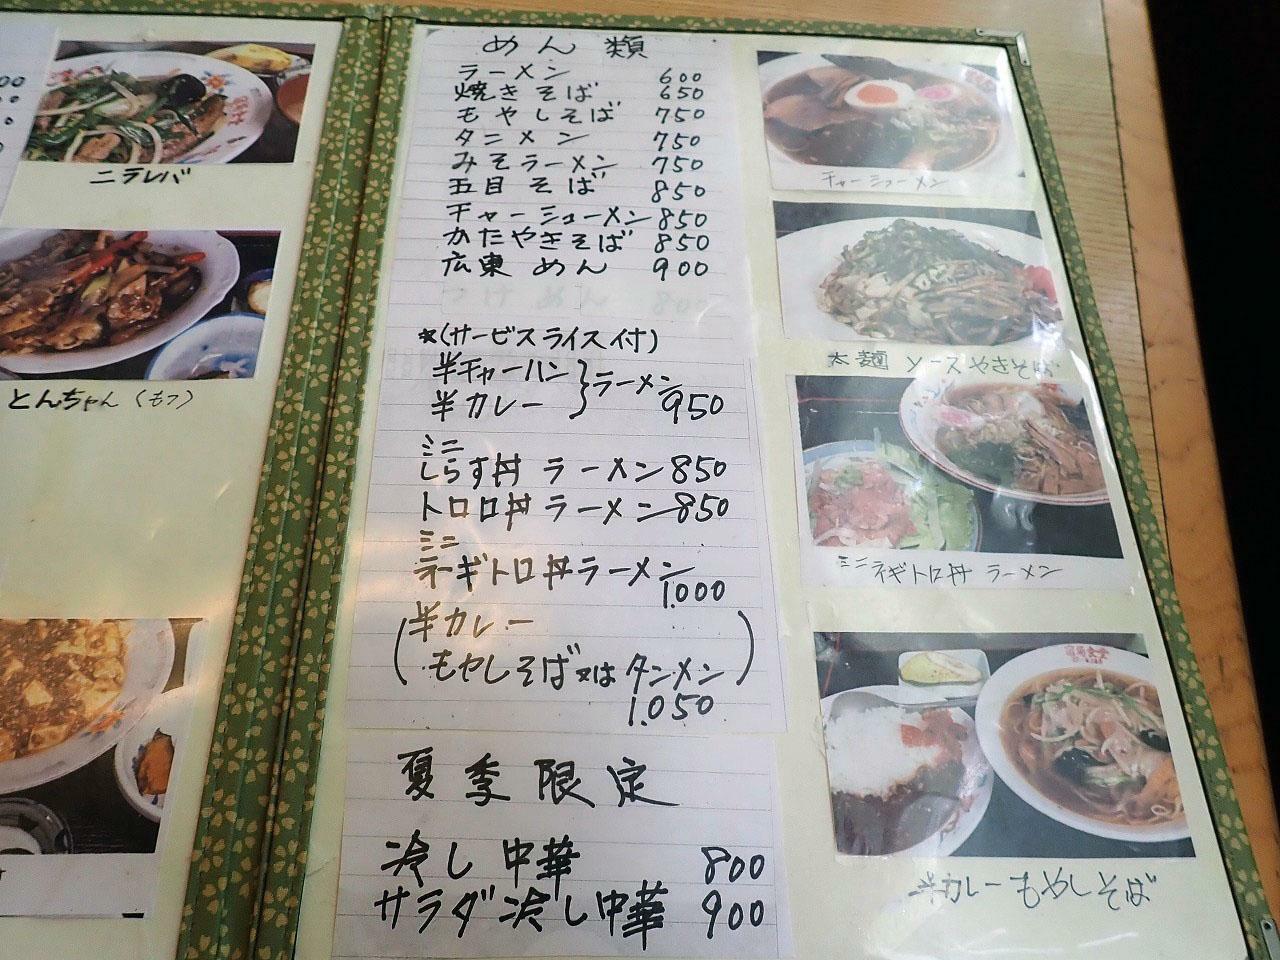 ニラレバ
とんちゃん(もつ)
めん類
ラーメン 600
焼きそば 650
もやしそば 750
タンメン 750
みそラーメン 750
五目そば 850
チャーシューメン 850
かたやきそば 850
広東めん 900
つけめん 800
*(サービスライス付)
半チャーハン
半カレー }ラーメン 950
ミニ
しらす丼 ラーメン 850
トロロ丼 ラーメン 850
ミニ
ネギトロ丼ラーメン
1.000
(半カレー
もやしそば又は タンメン)
1.050
夏季限定
冷し中華 800
サラダ冷し中華 900
チャーシューメン
太麺 ソースやきそば
ミニネギトロ丼 ラーメン
半カレーもやしそば